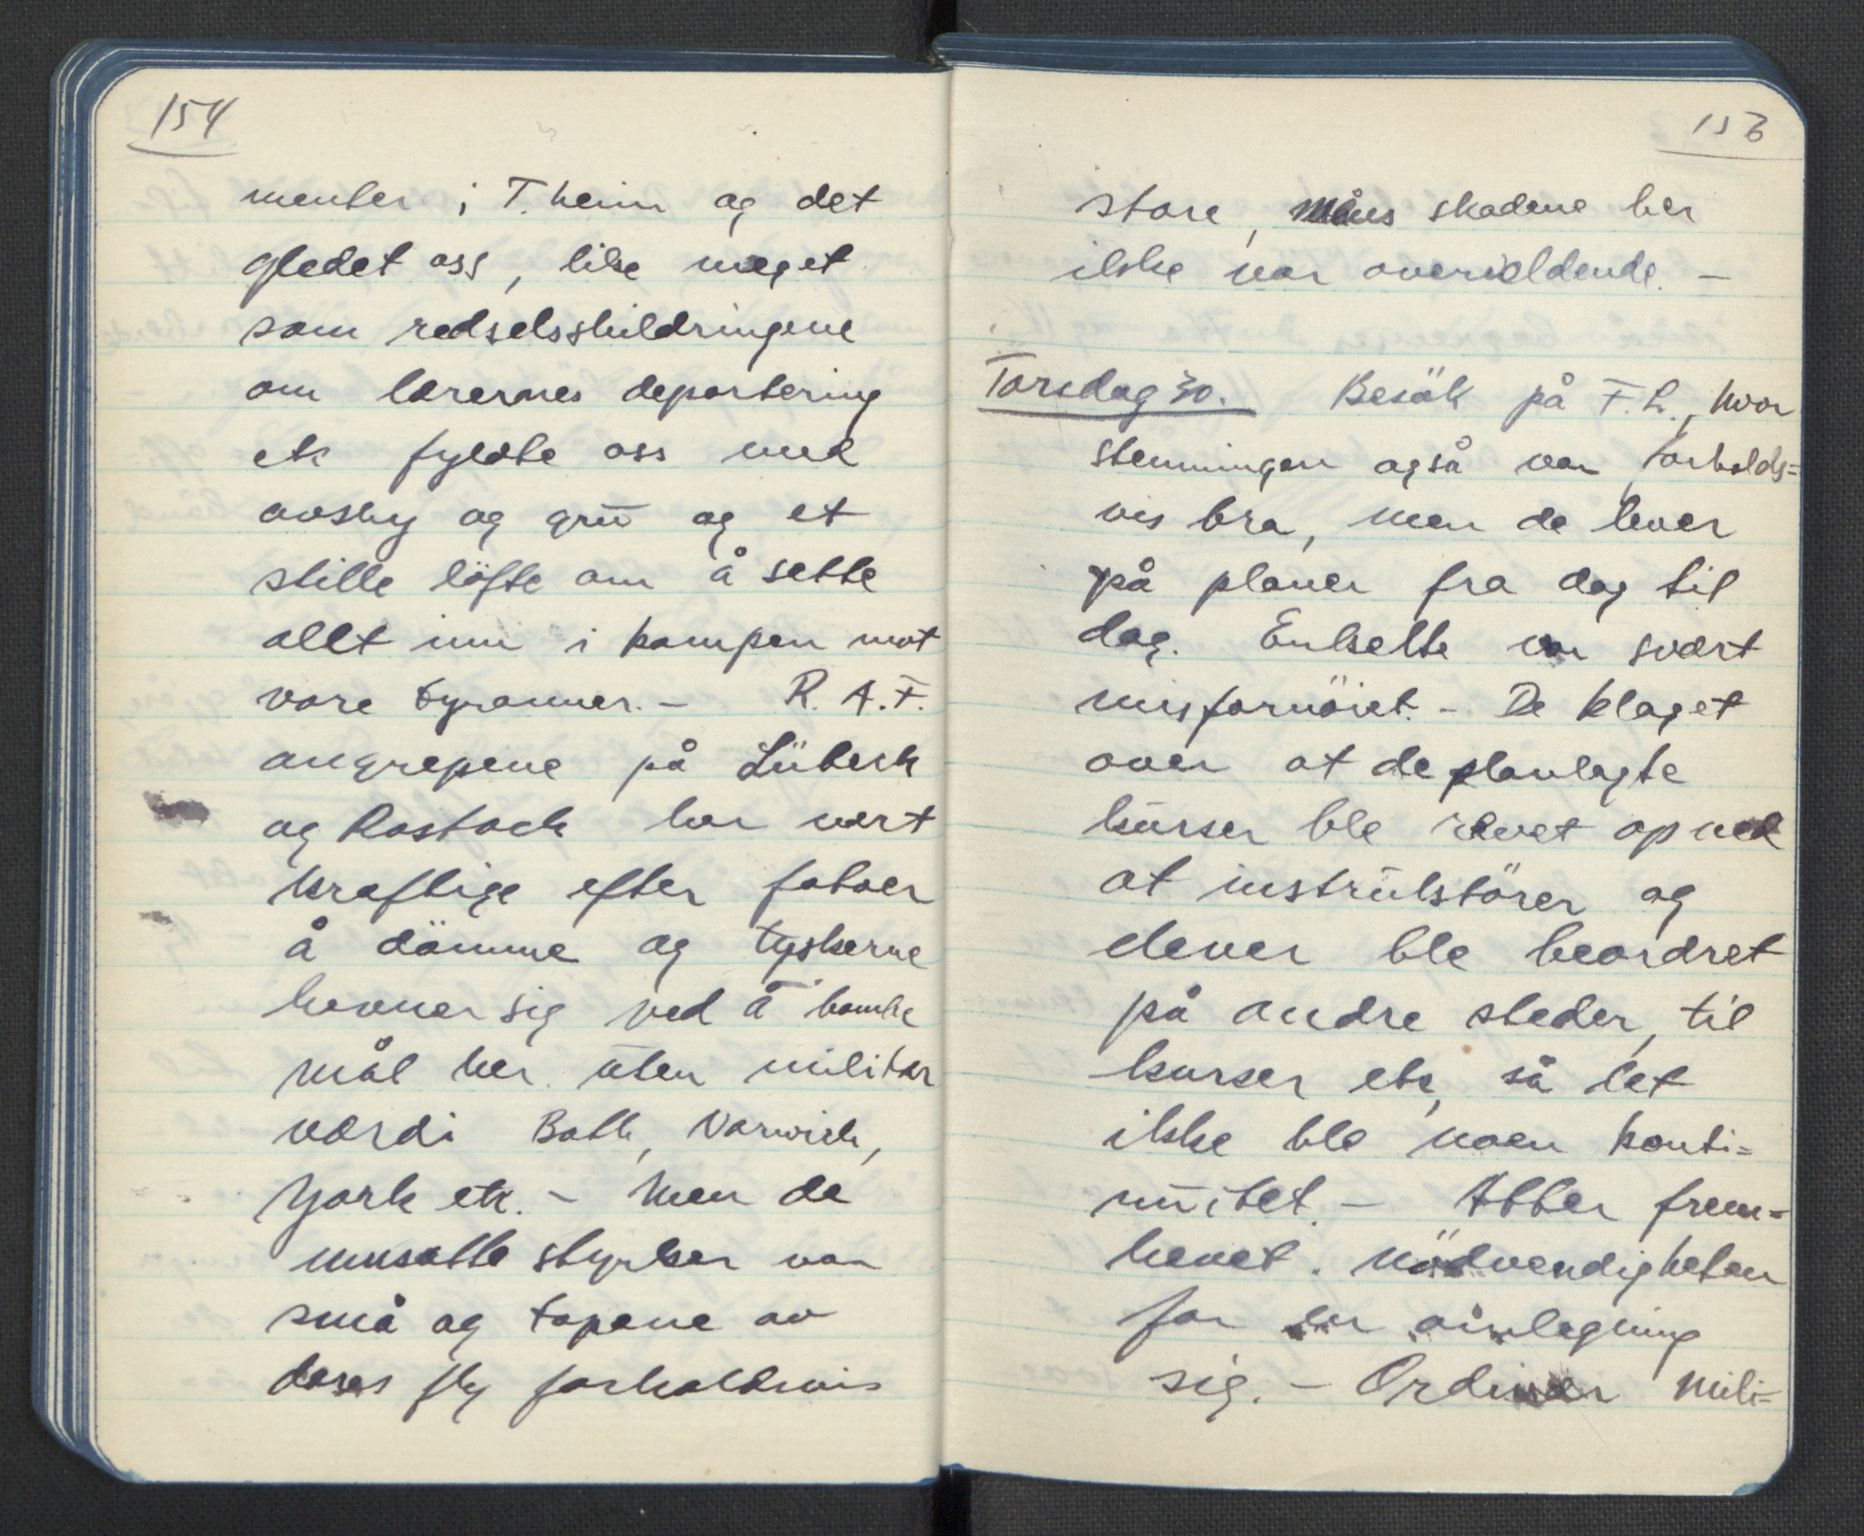 154
menter i T.heim og det
gledet oss, like meget
som redselsskildringene
om lærernes deportering
etc fyldte oss med
avsky og gru og et
stille löfte om å sette
allt inn i kampen mot
våre tyranner. - R.A.F.
angrepene på Lübeck
og Rostock har vært
kraftige efter fotoer
å dömme og tyskerne
hevner sig ved å bombe
mål her uten militær
værdi Bath, Norwich,
York etc. - Men de
innsatte styrker var
små og tapene av
deres fly forholdsvis
155
store, mens skadene her
ikke var overveldende. -
Torsdag 30. Besök på F.L., hvor
stemningen også var forholds=
vis bra, men de lever
på planer fra dag til
dag. Enkelte var svært
misfornöiet. - De klaget
over at de planlagte
kurser ble revet op ved
at instruktörer og
elever ble beordret
på andre steder, til
kurser etc, så det
ikke ble noen konti=
nuitet. - Atter frem=
hevet nödvendigheten
for en
sig. - Ordinær mili=